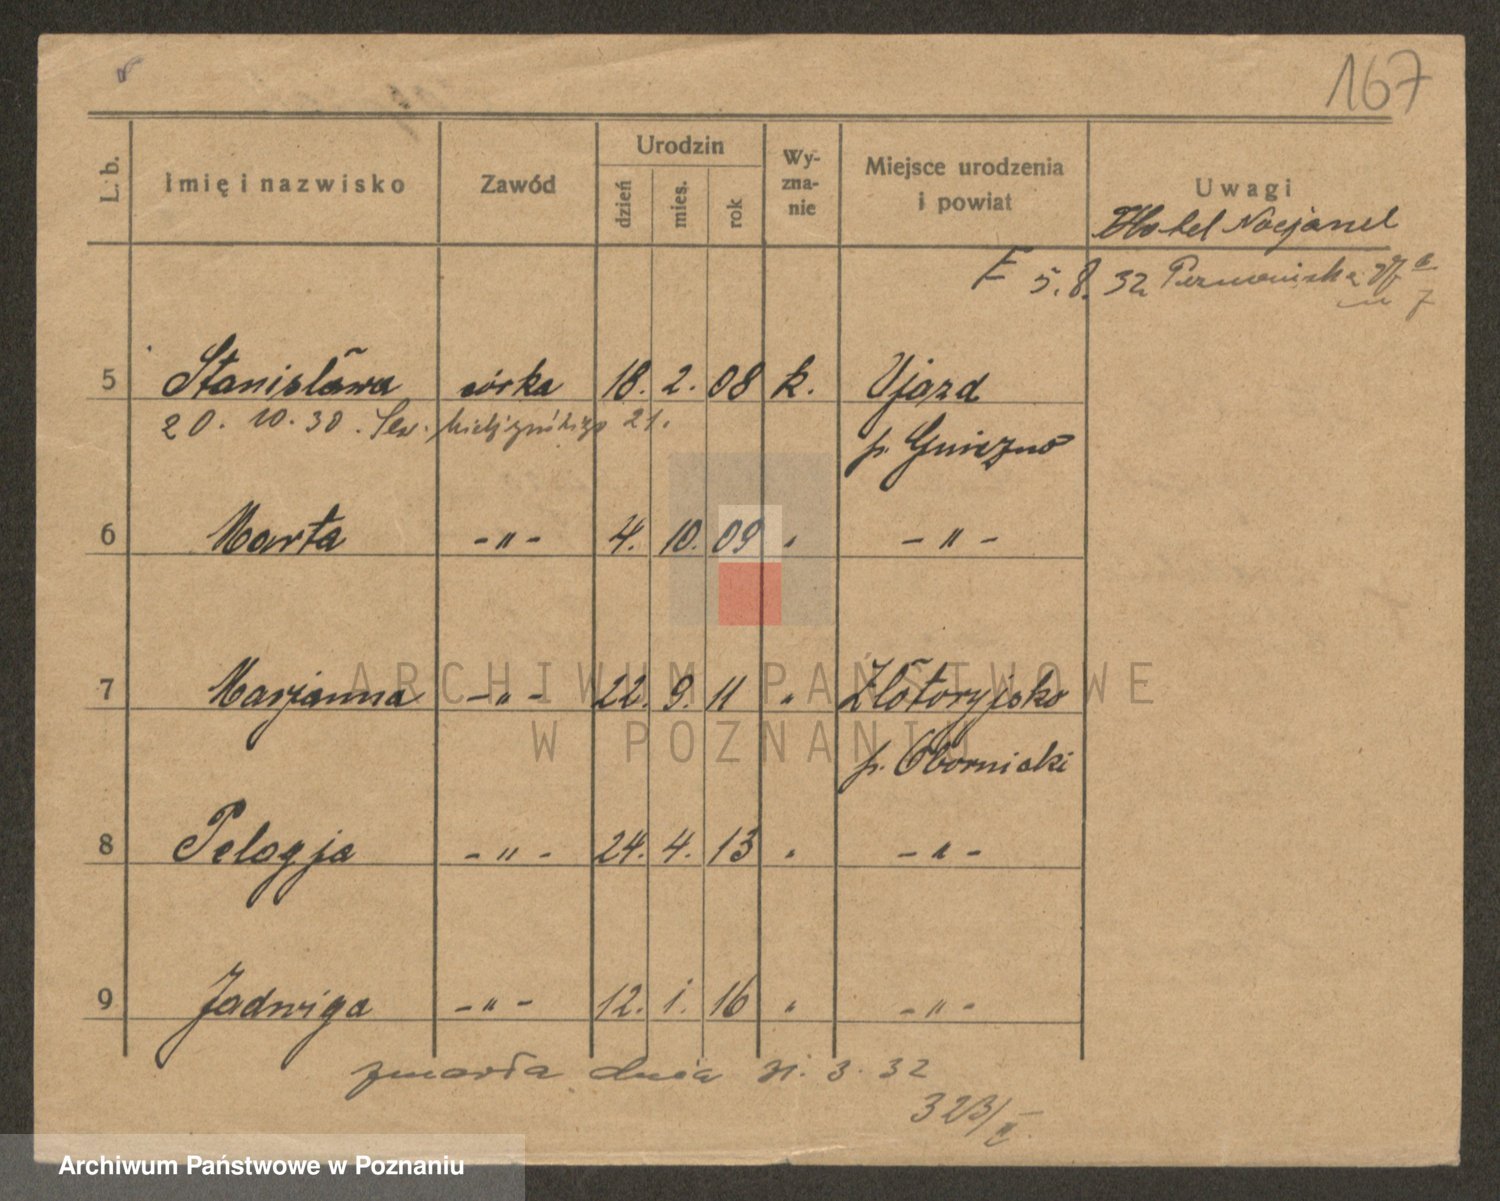 167
L. b.
Imię i nazwisko
Zawód
Urodzin
dzień
mies.
rok
Wy-
zna-
nie
Miejsce urodzenia
i powiat
Uwagi
Hotel
E 5. 8. 32
5 Stanisława córka 18. 2. 08 k. Ujazd
20. 10. 30. 21.
p. Gniezno
6 Marta -"- 4. 10. 09 " -"-
7 Marjanna -"- 22. 9. 11 " Złotoryjsko
p. Obornicki
8 Pelagja -"- 24. 4. 13 " -"-
9 Jadwiga -"- 12. 1. 16 " -"-
zmarła dnia 31. 3. 32
323/II
ARCHIWUM PAŃSTWOWE
W POZNANIU
Archiwum Państwowe w Poznaniu